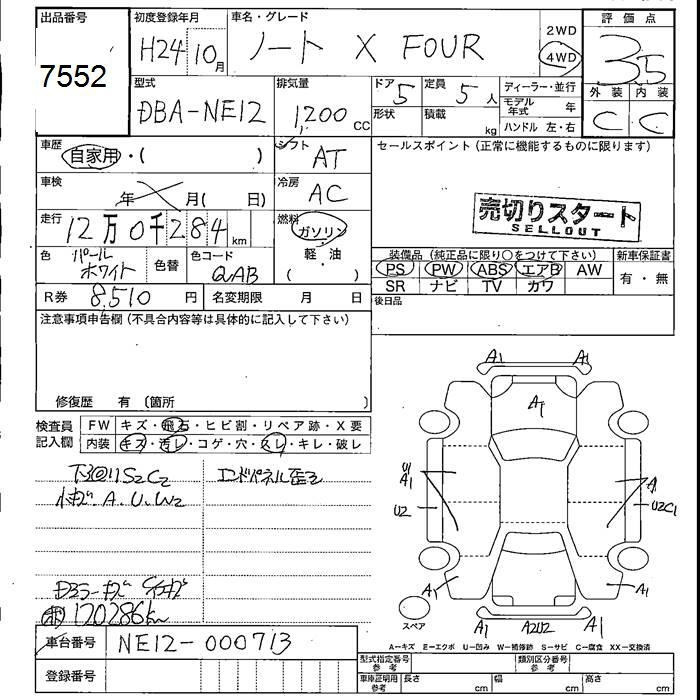 出品番号
7552
初度登録年月
H24 10月
車名・グレード
ノート X FOUR
2WD
4WD
評価点
3.5
外装 内装
C C
型式
DBA-NE12
排気量
1,200 CC
ドア 5
形状
定員 5人
積載 kg
ディーラー・並行
モデル年式 年
ハンドル 左・右
車歴
自家用・( )
シフト
AT
セールスポイント(正常に機能するものに限ります)
車検
年 月( 日)
冷房
AC
売切りスタート
SELLOUT
走行
12万0千284km
燃料
ガソリン
軽・油
( )
色
パールホワイト
色替
色コード
QAB
装備品(純正品に限り○をつけて下さい)
PS PW ABS エアB AW
SR ナビ TV カワ
新車保証書
有・無
R券 8,510円
名変期限 月 日
後日品
注意事項申告欄(不具合内容等は具体的に記入して下さい)
修復歴 有 〔箇所 〕
検査員記入欄
FW キズ・飛石・ヒビ割・リペア跡・X要
内装 キズ・汚レ・コゲ・穴・スレ・キレ・破レ
エンドパネル歪2
A.U.W2
120286km
車台番号
NE12-000713
登録番号
A1 A1
A1
U1
A1
U2
A1
U2C1
A1 A1
スペア
A1 A2U2 A1
A-キズ E-エクボ U-凹み W-補修跡 S-サビ C-腐食 XX-交換済
型式指定番号 参考
類別区分番号 参考
車庫証明用 参考
長さ cm
幅 cm
高さ cm